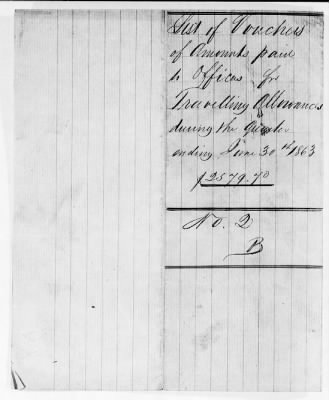 List of Vouchers
of Amounts paid
to Officers for
Travelling Allowances
during the Quarter
ending June 30th 1863
$2579.70
No. 2
B